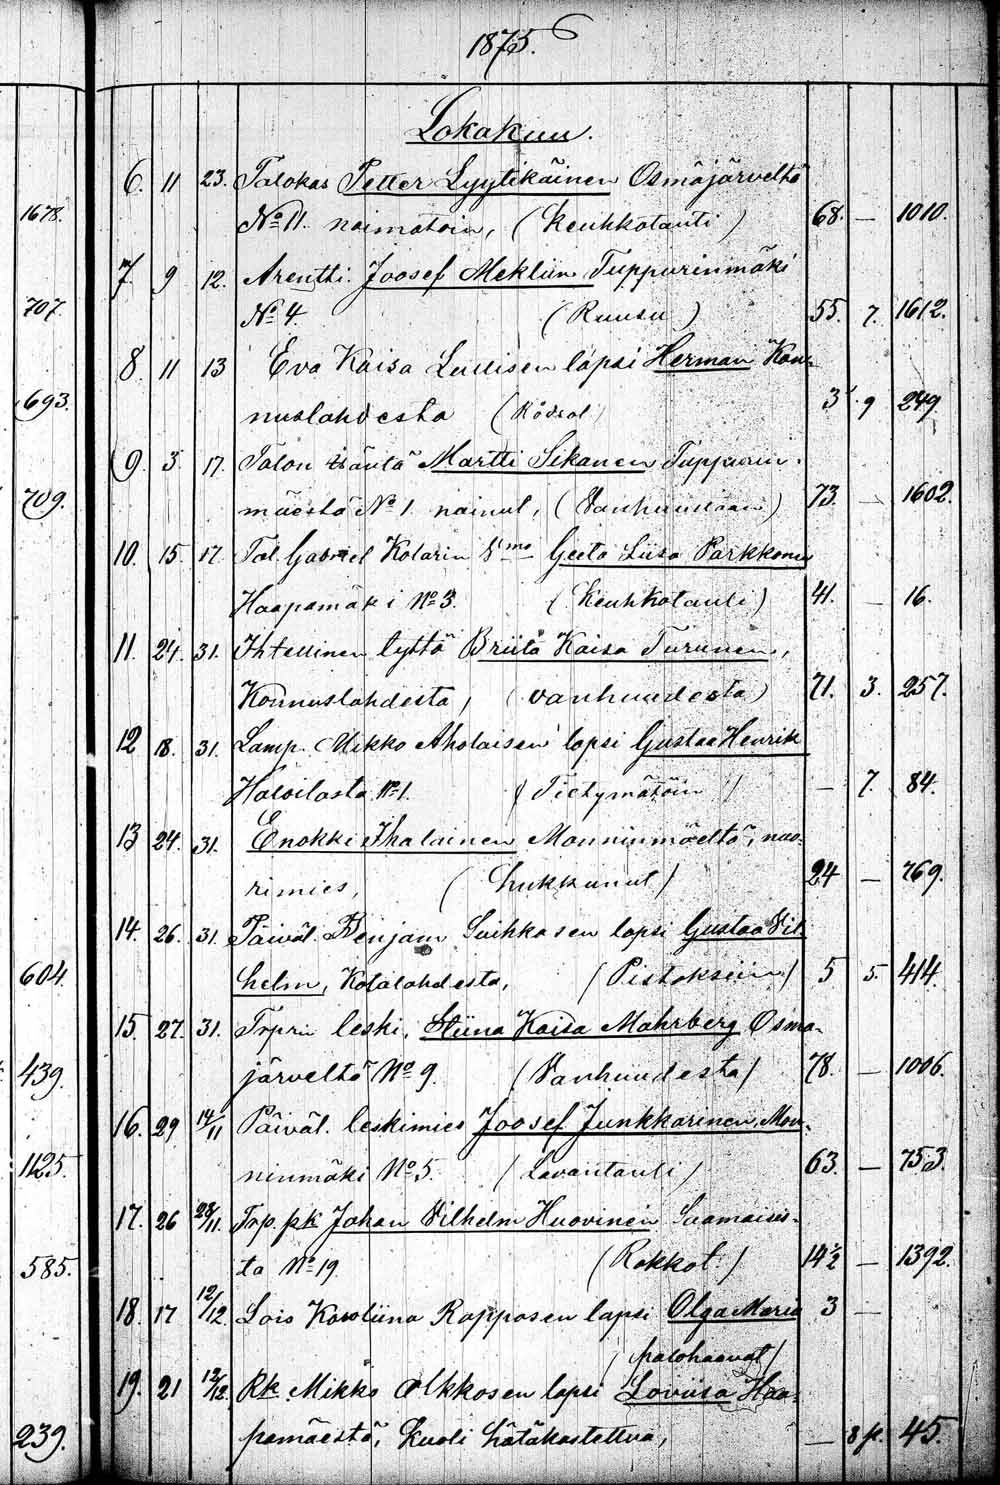 1875.
Lokakuu.
6. 11 23. Talokas Petter Lyytikäinen Osmäjärveltä
1678. No 11. naimatoin, (Keuhkotauti) 68. — 1010.
7. 9 12. Arentti. Joosef Mekliin Tuppurinmäki
707. No 4. (Ruusu) 55. 7. 1612.
8 11 13 Eva Kaisa Lullisen lapsi Herman Kon-
693. nuslahdesta 3 9 249.
9. 3. 17. Talon isäntä Martti Sikanen Tuppurin-
709. mäestä No 1 nainut, (Vanhuudesta) 73. — 1602.
10. 15. 17. Tal. Gabriel Kolarin Vmo Geeta Liisa Parkkonen
Haapamäki No 3. (Keuhkotauti) 41. — 16.
11. 24. 31. Ihtellinen tyttö Briita Kaisa Turunen,
Konnuslahdesta, (vanhuudesta) 71. 3. 257.
12 18. 31. Lamp. Mikko Aholaisen lapsi Gustaa Henrik
No 1. (Tietymätöin) — 7. 84.
13 24. 31. Enokki Ihalainen Monninmäeltä, nuo-
rimies, (hukkunut) 24 — 769.
14. 26. 31. Päiväl. Benjam Suihkosen lapsi Gustaa Vil-
604. helm, Kotalahdesta, (Pistoksiin) 5 5. 414.
15. 27. 31. leski, Stiina Kaisa Mahrberg Osma-
439. järveltä No 9. (Vanhuudesta) 78. — 1006.
16. 29 14/11 Päiväl. leskimies Joosef Junkkarinen, Mon-
1125. ninmäki No 5. (Lavantauti) 63. — 753.
17. 26 28/11. Trp. pk Johan Vilhelm Huovinen Saamais-
585. ta No 19. (Rokkot) 14 1/2 — 1392.
18. 17 12/12. Lois Karoliina Rapposen lapsi Olga Maria 3 —
(palohaavat)
19. 21 12/12. Rk. Mikko Olkkosen lapsi Loviisa Haa-
239. pamäestä, kuoli hätäkastettua, — 8 p. 45.